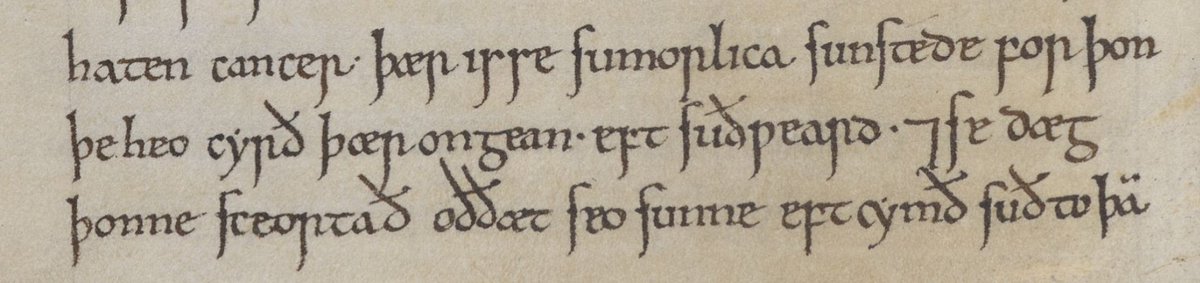 haten cancer· þær is se sumorlica sunstede forþon
þe heo cyrð þær ongean· eft suðƿeard· ⁊ se dæg
þonne sceortað oððæt seo sunne eft cymð suð to þā